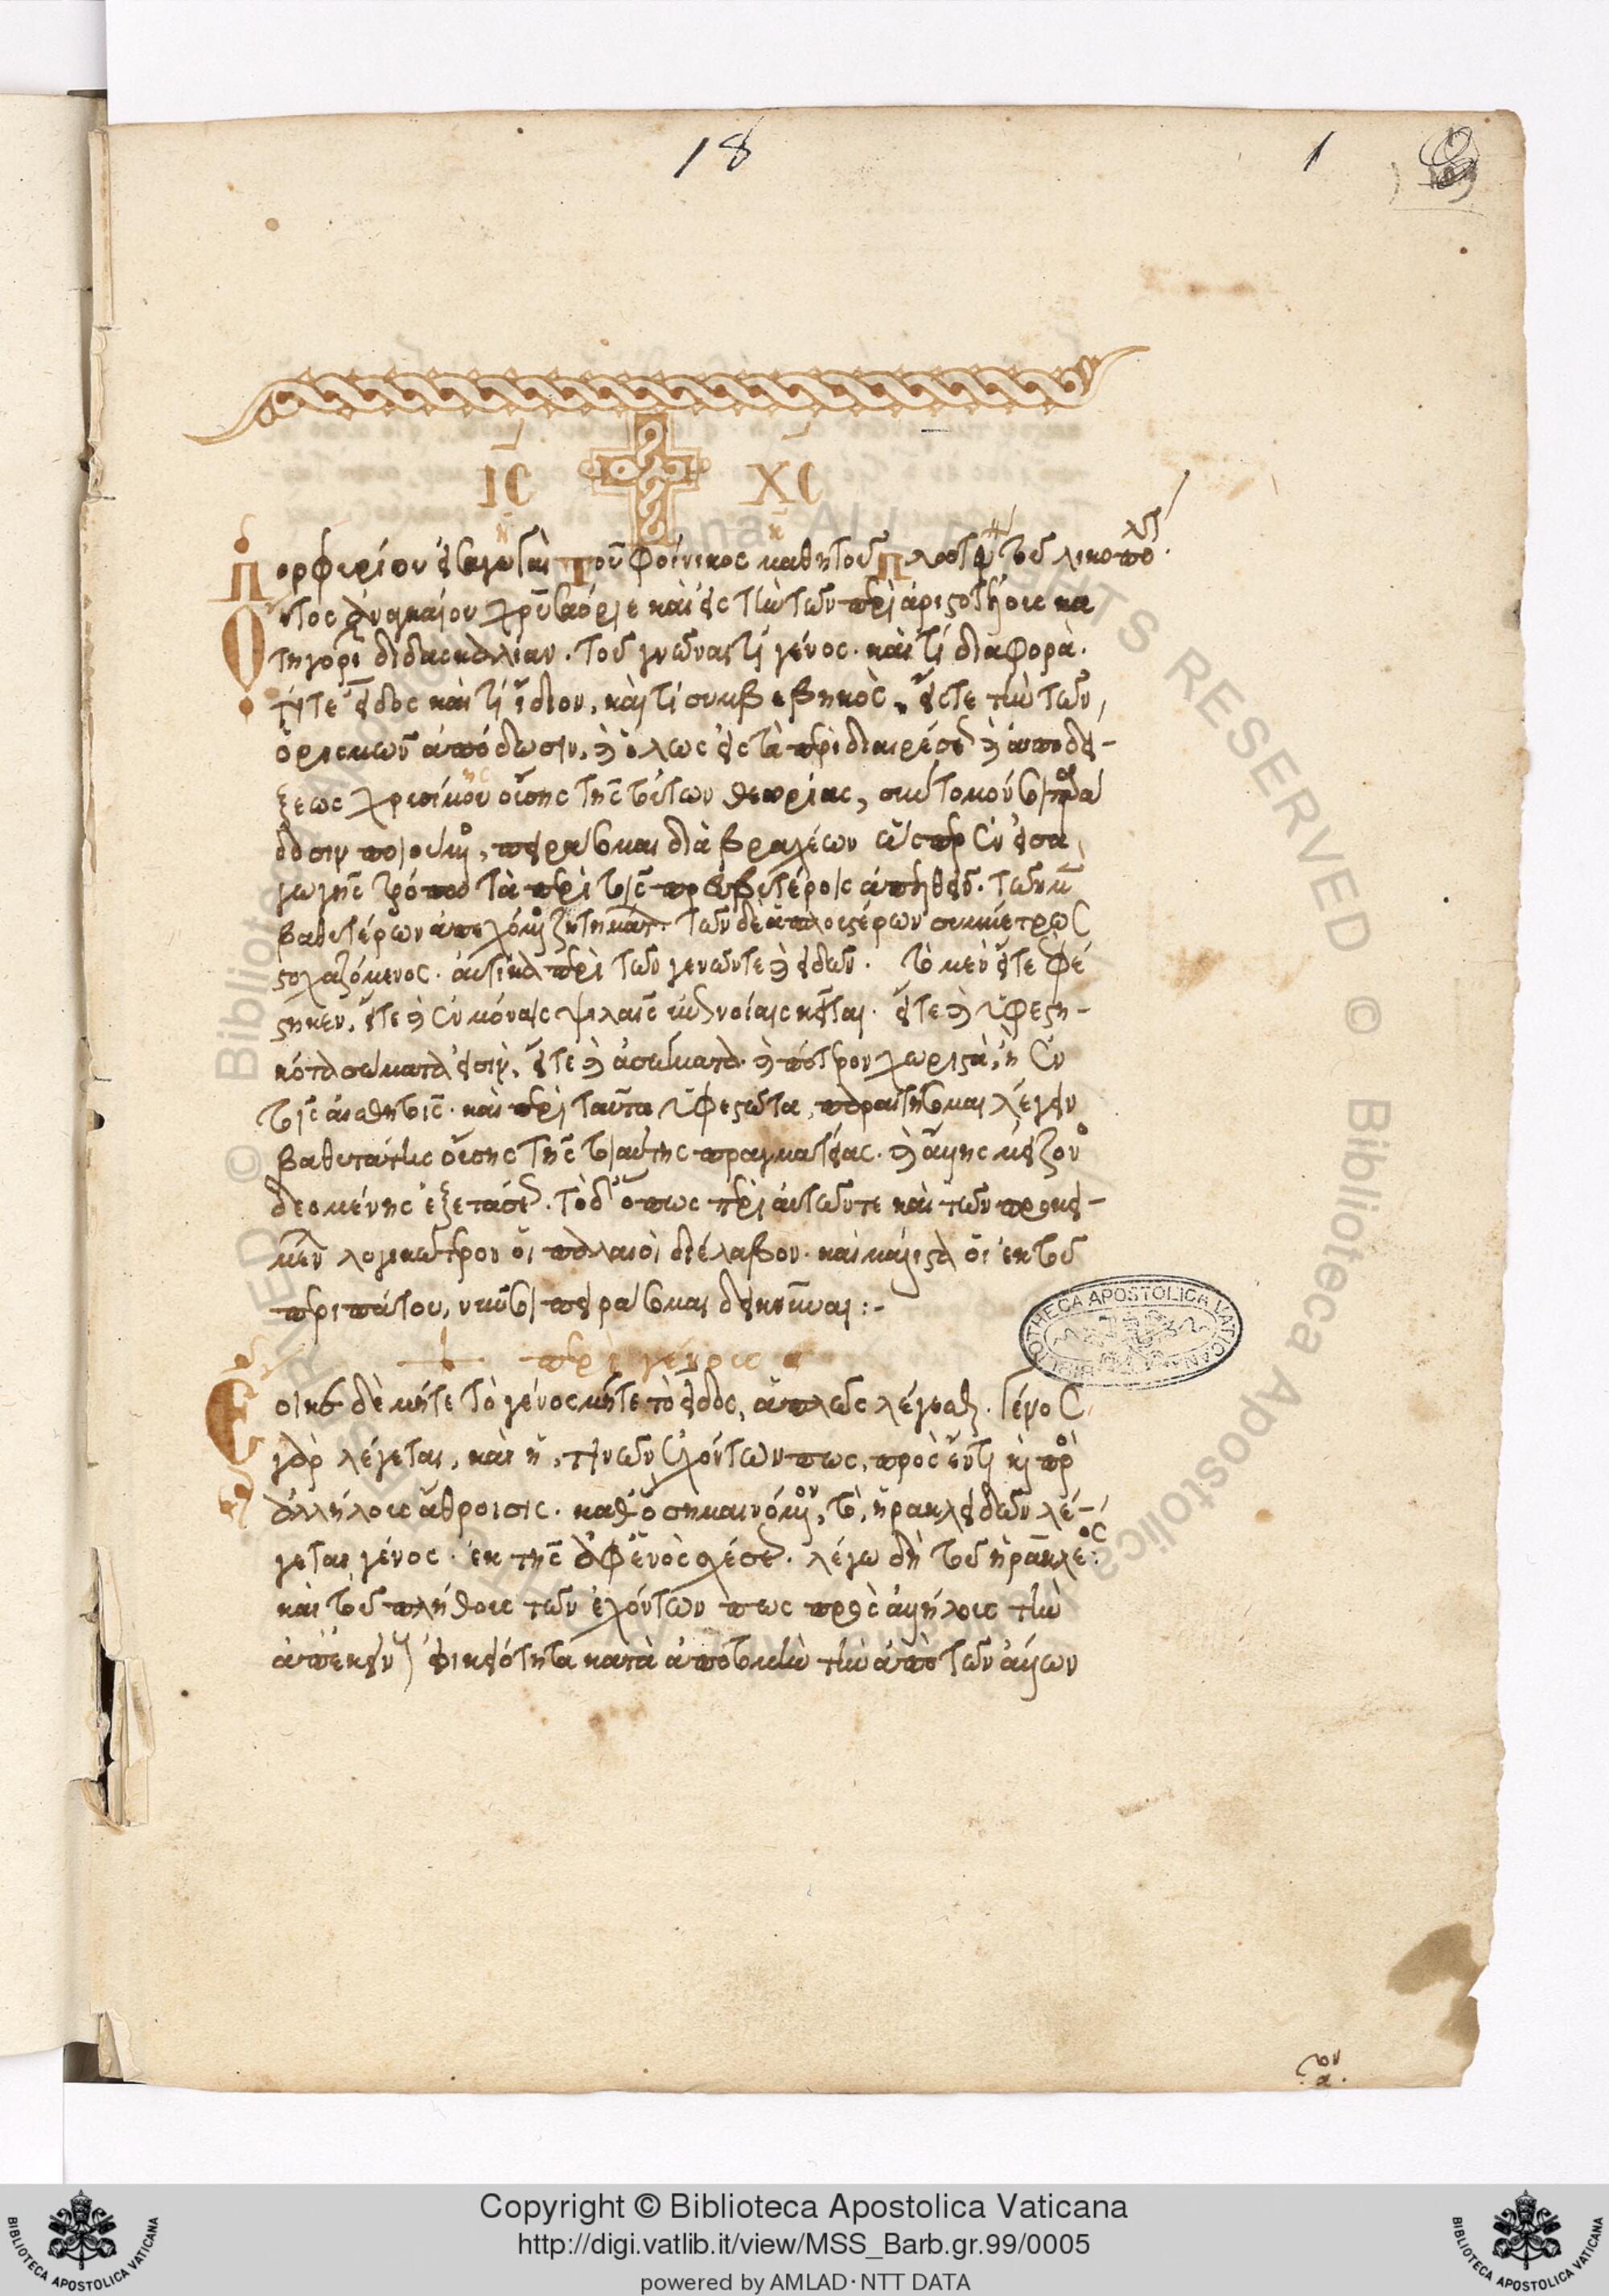 18
1
ΙϹ ΧϹ
Πορφυρίου εἰσαγωγαὶ τοῦ φοίνικος μαθητοῦ πλωτ τοῦ λικοπο
Ὄντος ἀναγκαίου χρυσαόριε καὶ εἰς τὴν τῶν περὶ ἀριστοτέλους κα
τηγορι διδασκαλίαν. τοῦ γνῶναι τί γένος. καὶ τί διαφορὰ.
τί τε εἶδος καὶ τί ἴδιον, καὶ τί συμβεβηκὸς, εἴς τε τὴν τῶν
ὁρισμῶν ἀπόδωσιν, καὶ ὅλως εἰς τὰ περὶ διαιρέσεως καὶ ἀποδεί-
ξεως χρισίμου οὔσης τῆς τούτων θεωρίας, σύντομόν σοι παρά
δοσιν ποιούμενος, πειράσομαι διὰ βραχέων ὥσπερ ἐν εἰσα
γωγῆς τρόπου τὰ περὶ τοῖς πρεσβυτέροις ἀπελθεῖν. τῶν μὲν
βαθυτέρων ἀπεχόμενος ζητημάτων τῶν δὲ ἁπλουστέρων συμμέτρως
στοχαζόμενος. αὐτίκα περὶ τῶν γενῶν τε καὶ εἰδῶν. τὸ μὲν εἴτε ὑφέ
στηκεν, εἴτε καὶ ἐν μόναις ψιλαῖς ἐπινοίαις κεῖται. εἴτε καὶ ὑφεστη-
κότα σώματά εἰσιν, εἴτε καὶ ἀσώματα. καὶ πότερον χωριστὰ, ἢ ἐν
τοῖς αἰσθητοῖς. καὶ περὶ ταῦτα ὑφεστῶτα, παραιτήσομαι λέγειν
βαθυτάτης οὔσης τῆς τοιαύτης πραγματείας. καὶ ἄλλης μείζονος
δεομένης ἐξετάσεως. τὸ δ' ὅπως περὶ αὐτῶν τε καὶ τῶν προκει-
μένων λογικώτερον οἱ παλαιοὶ διέλαβον. καὶ μάλιστα οἱ ἐκ τοῦ
περιπάτου, νῦν σοι πειράσομαι δεικνύναι:-
περὶ γένους
Ἔοικε δὲ μήτε τὸ γένος μήτε τὸ εἶδος, ἁπλῶς λέγεσθαι. Γένος
γὰρ λέγεται, καὶ ἡ τινῶν ἐχόντων πως, πρὸς ἕν τι καὶ πρὸς
ἀλλήλους ἄθροισις. καθ' ὃ σημαινόμενον, τὸ, ἡρακλειδῶν λέ-
γεται γένος. ἐκ τῆς ἀφ' ἑνὸς σχέσεως. λέγω δὴ τοῦ ἡρακλέος
καὶ τοῦ πλήθους τῶν ἐχόντων πως πρὸς ἀλλήλους τὴν
ἀπ' ἐκείνου οἰκειότητα κατὰ ἀποτομὴν τὴν ἀπὸ τῶν ἄλλων
BIBLIOTHECA APOSTOLICA VATICANA
Copyright © Biblioteca Apostolica Vaticana
http://digi.vatlib.it/view/MSS_Barb.gr.99/0005
powered by AMLAD · NTT DATA